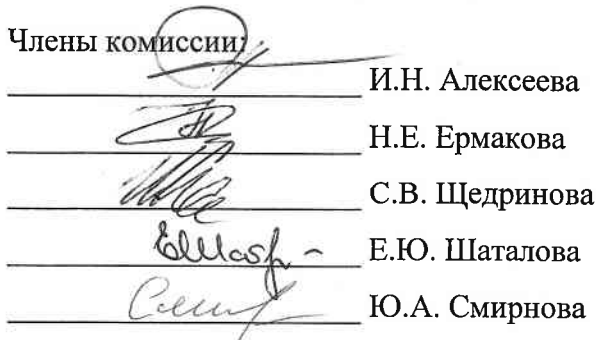 Члены комиссии:
И.Н. Алексеева
Н.Е. Ермакова
С.В. Щедринова
Е.Ю. Шаталова
Ю.А. Смирнова